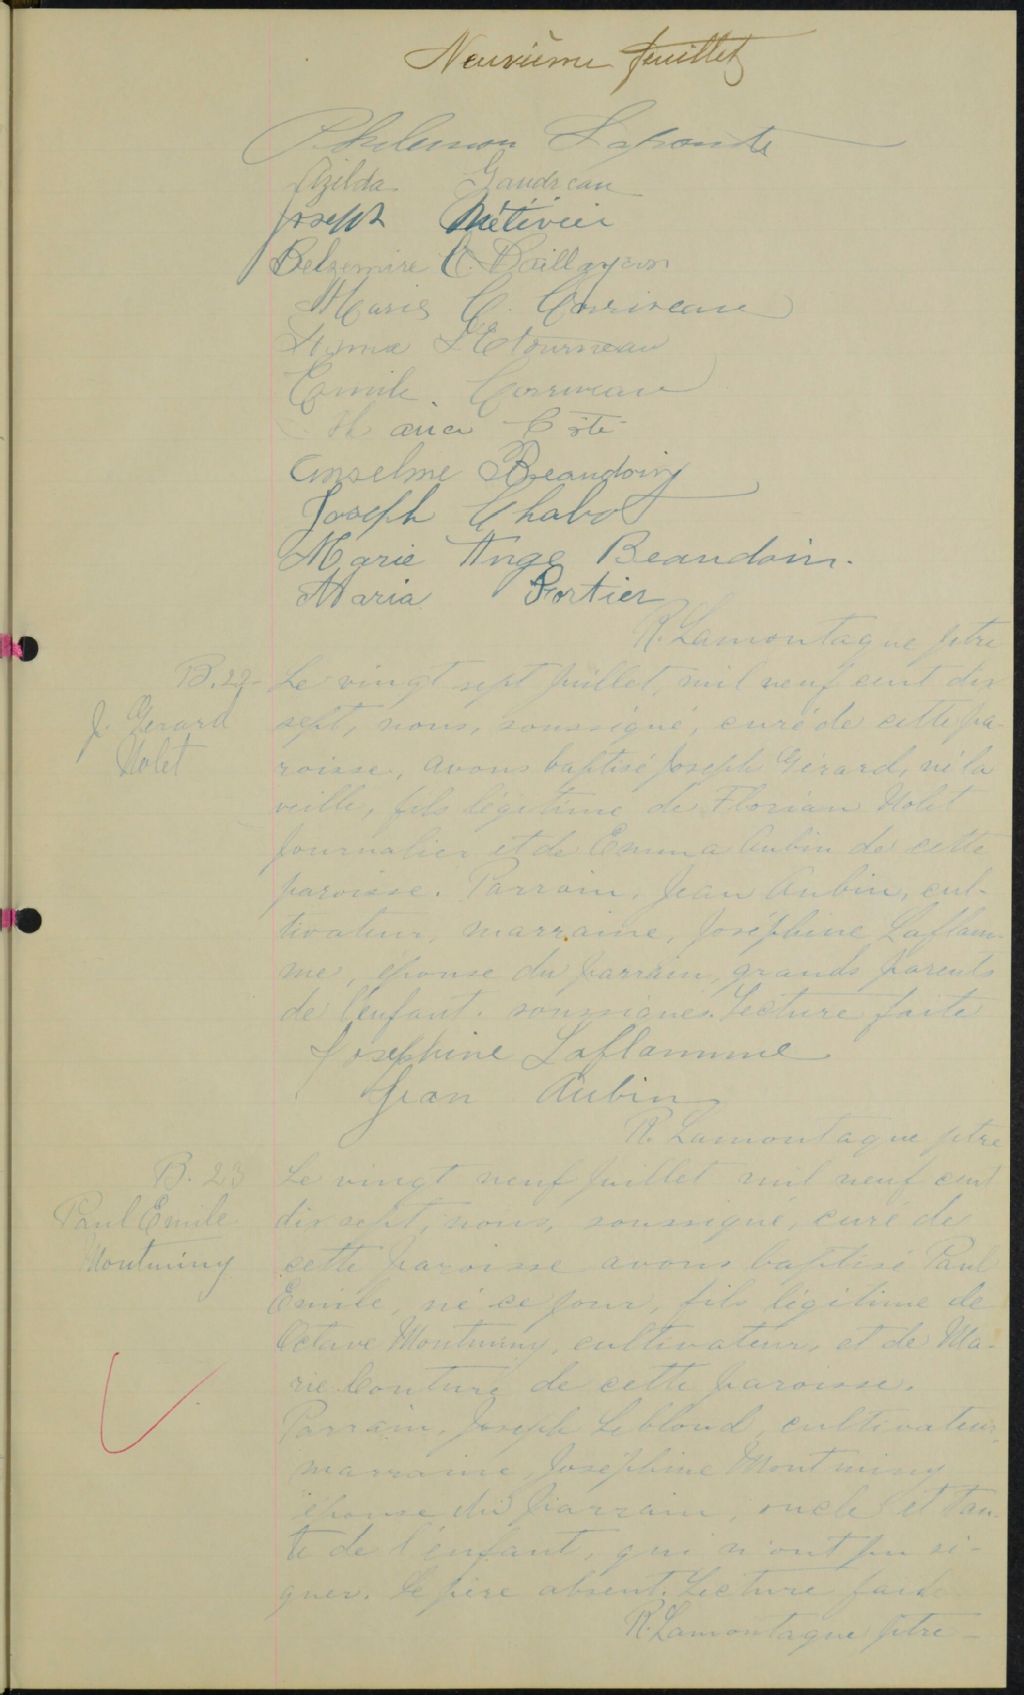 Neuvième feuillet
Philemon Laponte
Azilda Gaudreau
Joseph Métivier
Belzemire C. Baillargeon
Marie C. Corriveau
Anna L'Etourneau
Emile Corriveau
Maria Coté
Anselme Beaudoin
Joseph Chabot
Marie Ange Beaudoin.
Maria Fortier
R. Lamontagne ptre
B. 22-
J. Gerard
Nolet
Le vingt sept Juillet, mil neuf cent dix
sept, nous, soussigné, curé de cette pa-
roisse, avons baptisé Joseph Gérard, né la
veille, fils légitime de Florian Nolet
Journalier et de Emma Aubin de cette
paroisse. Parrain, Jean Aubin, cul-
tivateur, marraine, Joséphine Laflam-
me, épouse du parrain, grands parents
de l'enfant. soussignés. Lecture faite
Josephine Laflamme
Jean Aubin
R. Lamontagne ptre
B. 23
Paul Emile
Montminy
Le vingt neuf Juillet mil neuf cent
dix sept, nous, soussigné, curé de
cette paroisse avons baptisé Paul
Emile, né ce jour, fils légitime de
Octave Montminy, cultivateur, et de Ma-
rie Couture de cette paroisse.
Parrain, Joseph Leblond, cultivateur,
marraine, Joséphine Montminy
épouse du parrain, oncle et tan-
te de l'enfant, qui n'ont pu si-
gner. Le père absent. Lecture faite
R. Lamontagne ptre-